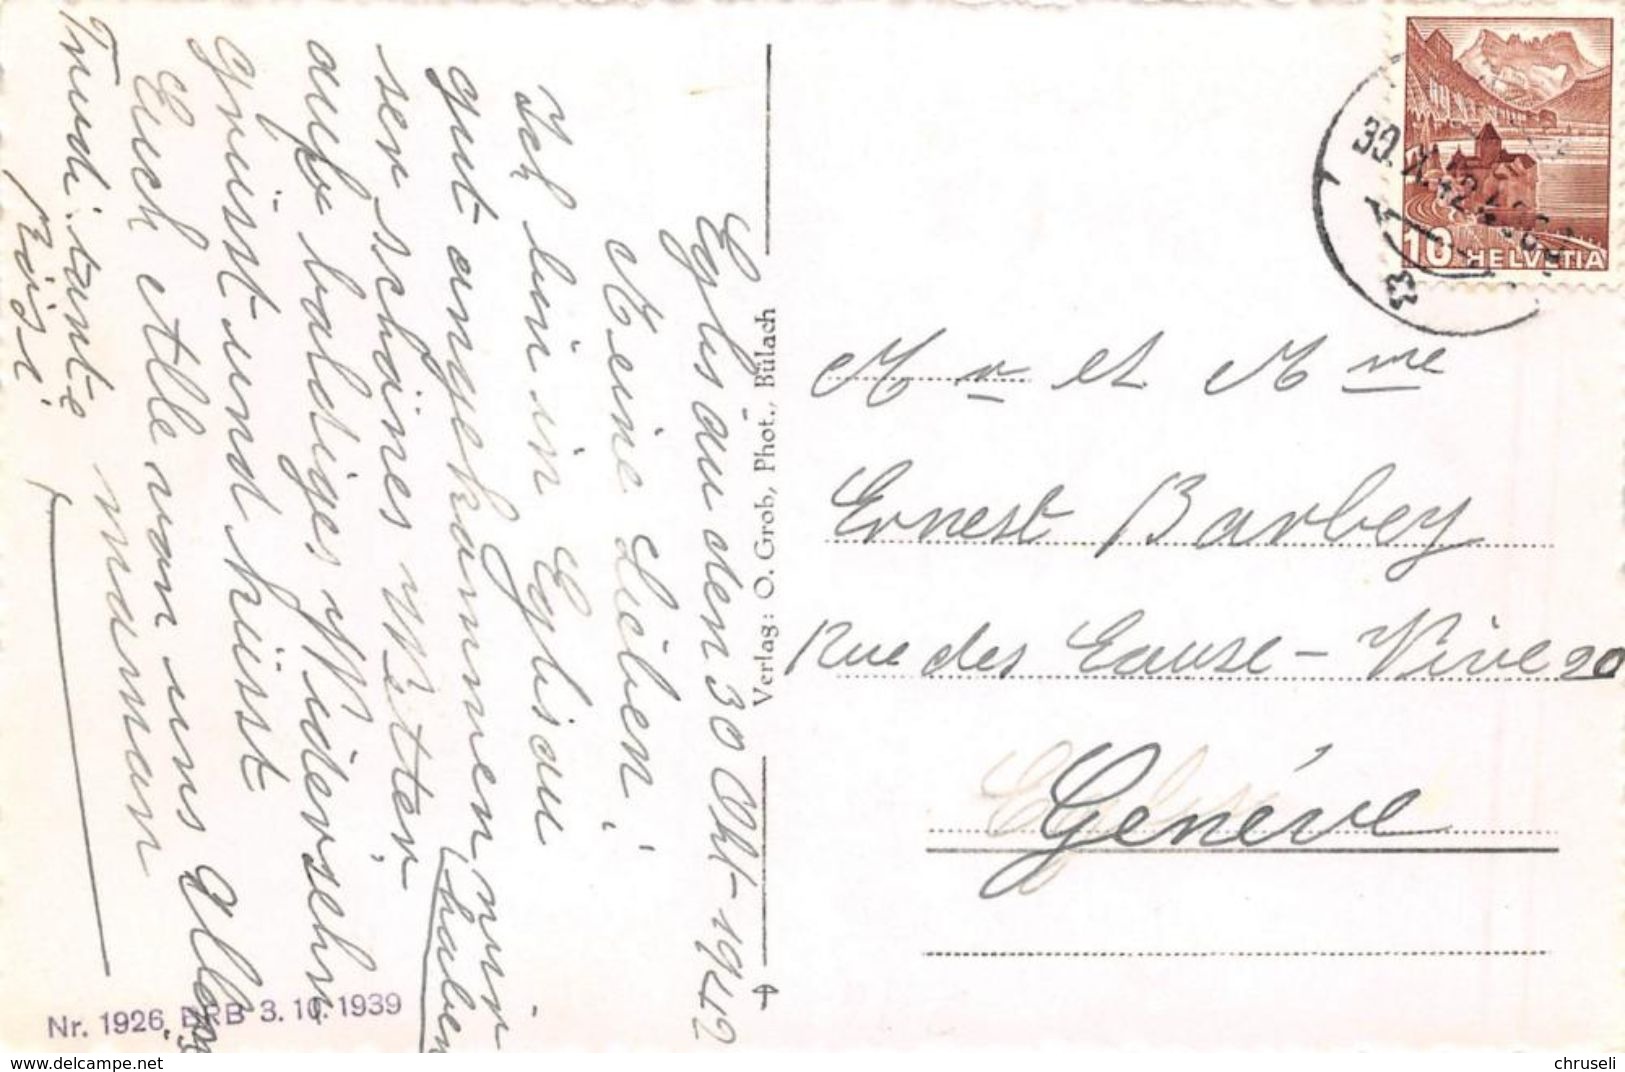 Eglisau den 30 Okt-1942
Meine Lieben!
Ich bin in Eglisau
gut angekommen wir
haben
ser schönes Wetter,
auf baldiges Widersehn
grüsst und küsst
Euch Alle von uns Allen
maman
Trudi. tante
Rösi
Verlag: O. Grob, Phot., Bülach
Nr. 1926 BRB 3. 10. 1939
10 HELVETIA
30. X. 42
Mr et Mme
Ernest Barbey
Rue des Eause-Vive 20
Genève
delcampe.net
chruseli